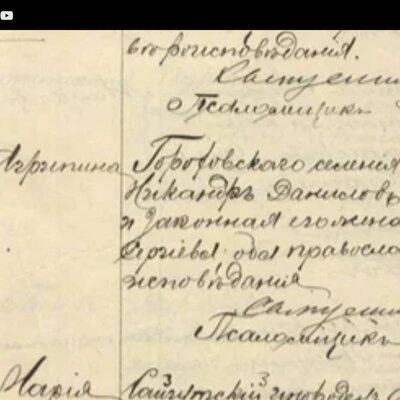 вѣроисповѣданія.
Священни
Псаломщикъ
Агрипина
Городовскаго селенія
Никандръ Данилов
и законная его жена
Сергіева оба правосла
исповѣданія
Священни
Псаломщикъ
Марія
инородецъ